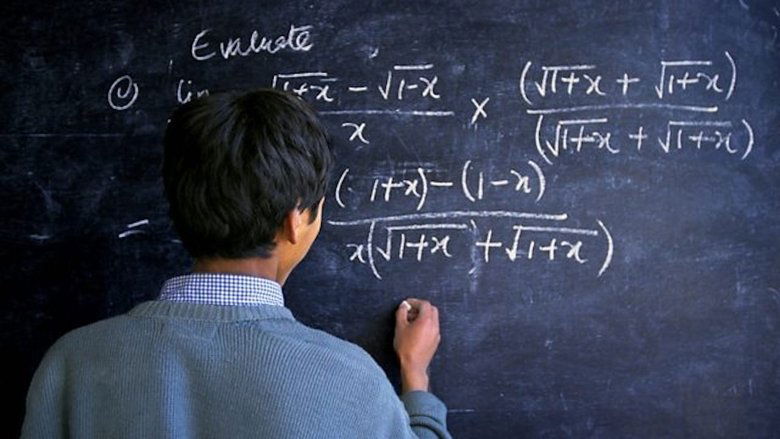 Evaluate
√1+x − √1-x (√1+x + √1+x)
x × (√1+x + √1+x)
= (1+x) − (1-x)
x(√1+x + √1+x)